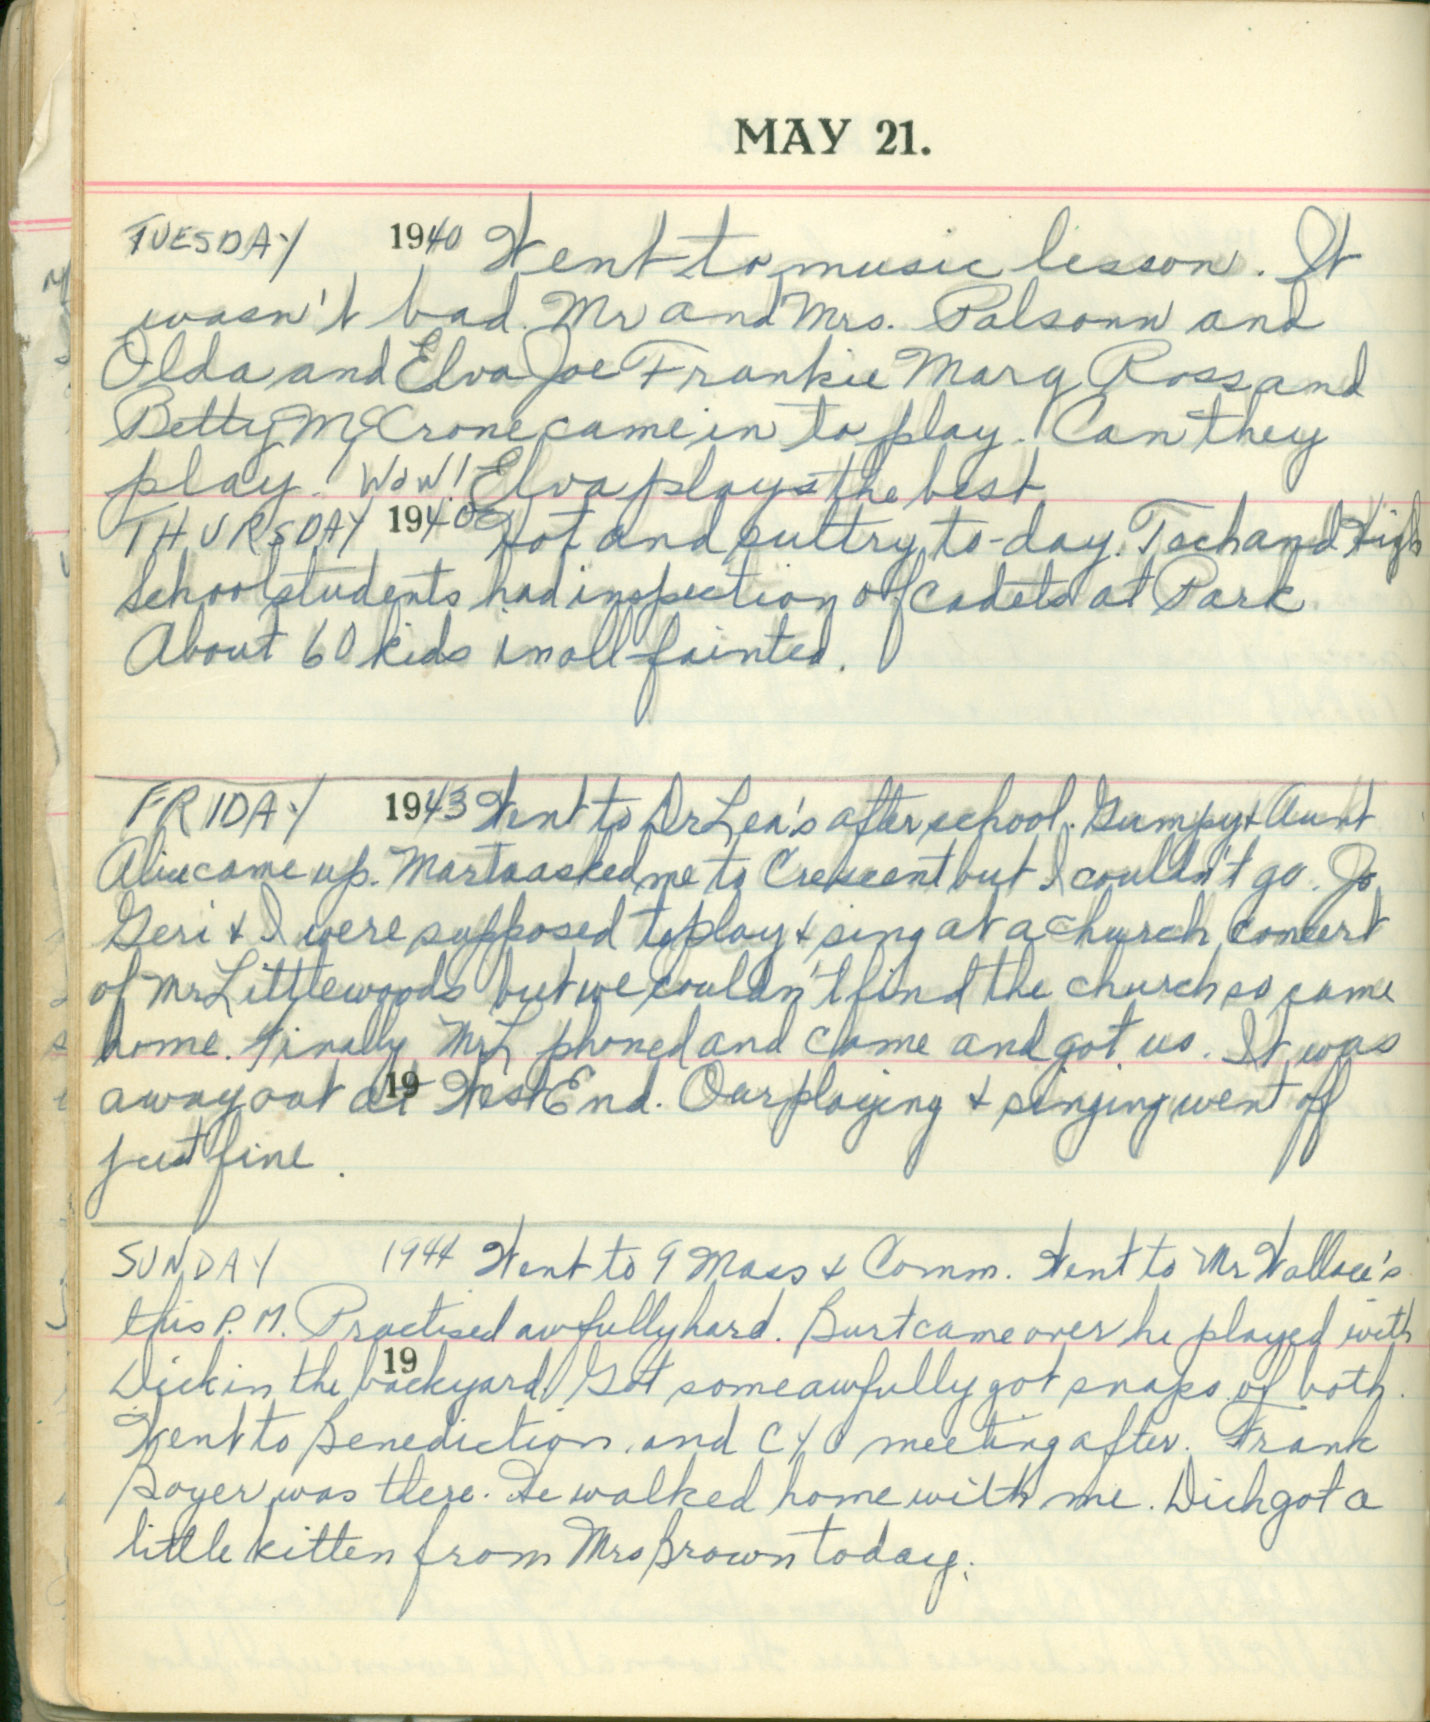 MAY 21.
TUESDAY 1940 Went to music lesson. It
wasn't bad. Mr and Mrs. Palsonn and
Olda and Elva Joe Frankie Mary Ross and
Betty McCrone came in to play. Can they
play! WOW! Elva plays the best
THURSDAY 194 Hot and sultry to-day. Tech and High
School students had inspection of Cadets at Park
About 60 kids in all fainted.
FRIDAY 1943 Went to Dr Lea's after school. Gumpy & Aunt
Alice came up. Marta asked me to Crescent but I couldn't go. Jo
Geri & I were supposed to play & sing at a church concert
of Mr Littlewoods but we couldn't find the church so came
home. Finally Mr L phoned and came and got us. It was
away out at 19 West End. Our playing & singing went off
just fine.
SUNDAY 1944 Went to 9 Mass & Comm. Went to Mr Wallace's
this P.M. Practised awfully hard. Burt came over he played with
Dick in the backyard. 19 Got some awfully got snaps of both.
Went to Benediction and CYO meeting after. Frank
Boyer was there. He walked home with me. Dick got a
little kitten from Mrs Brown today.